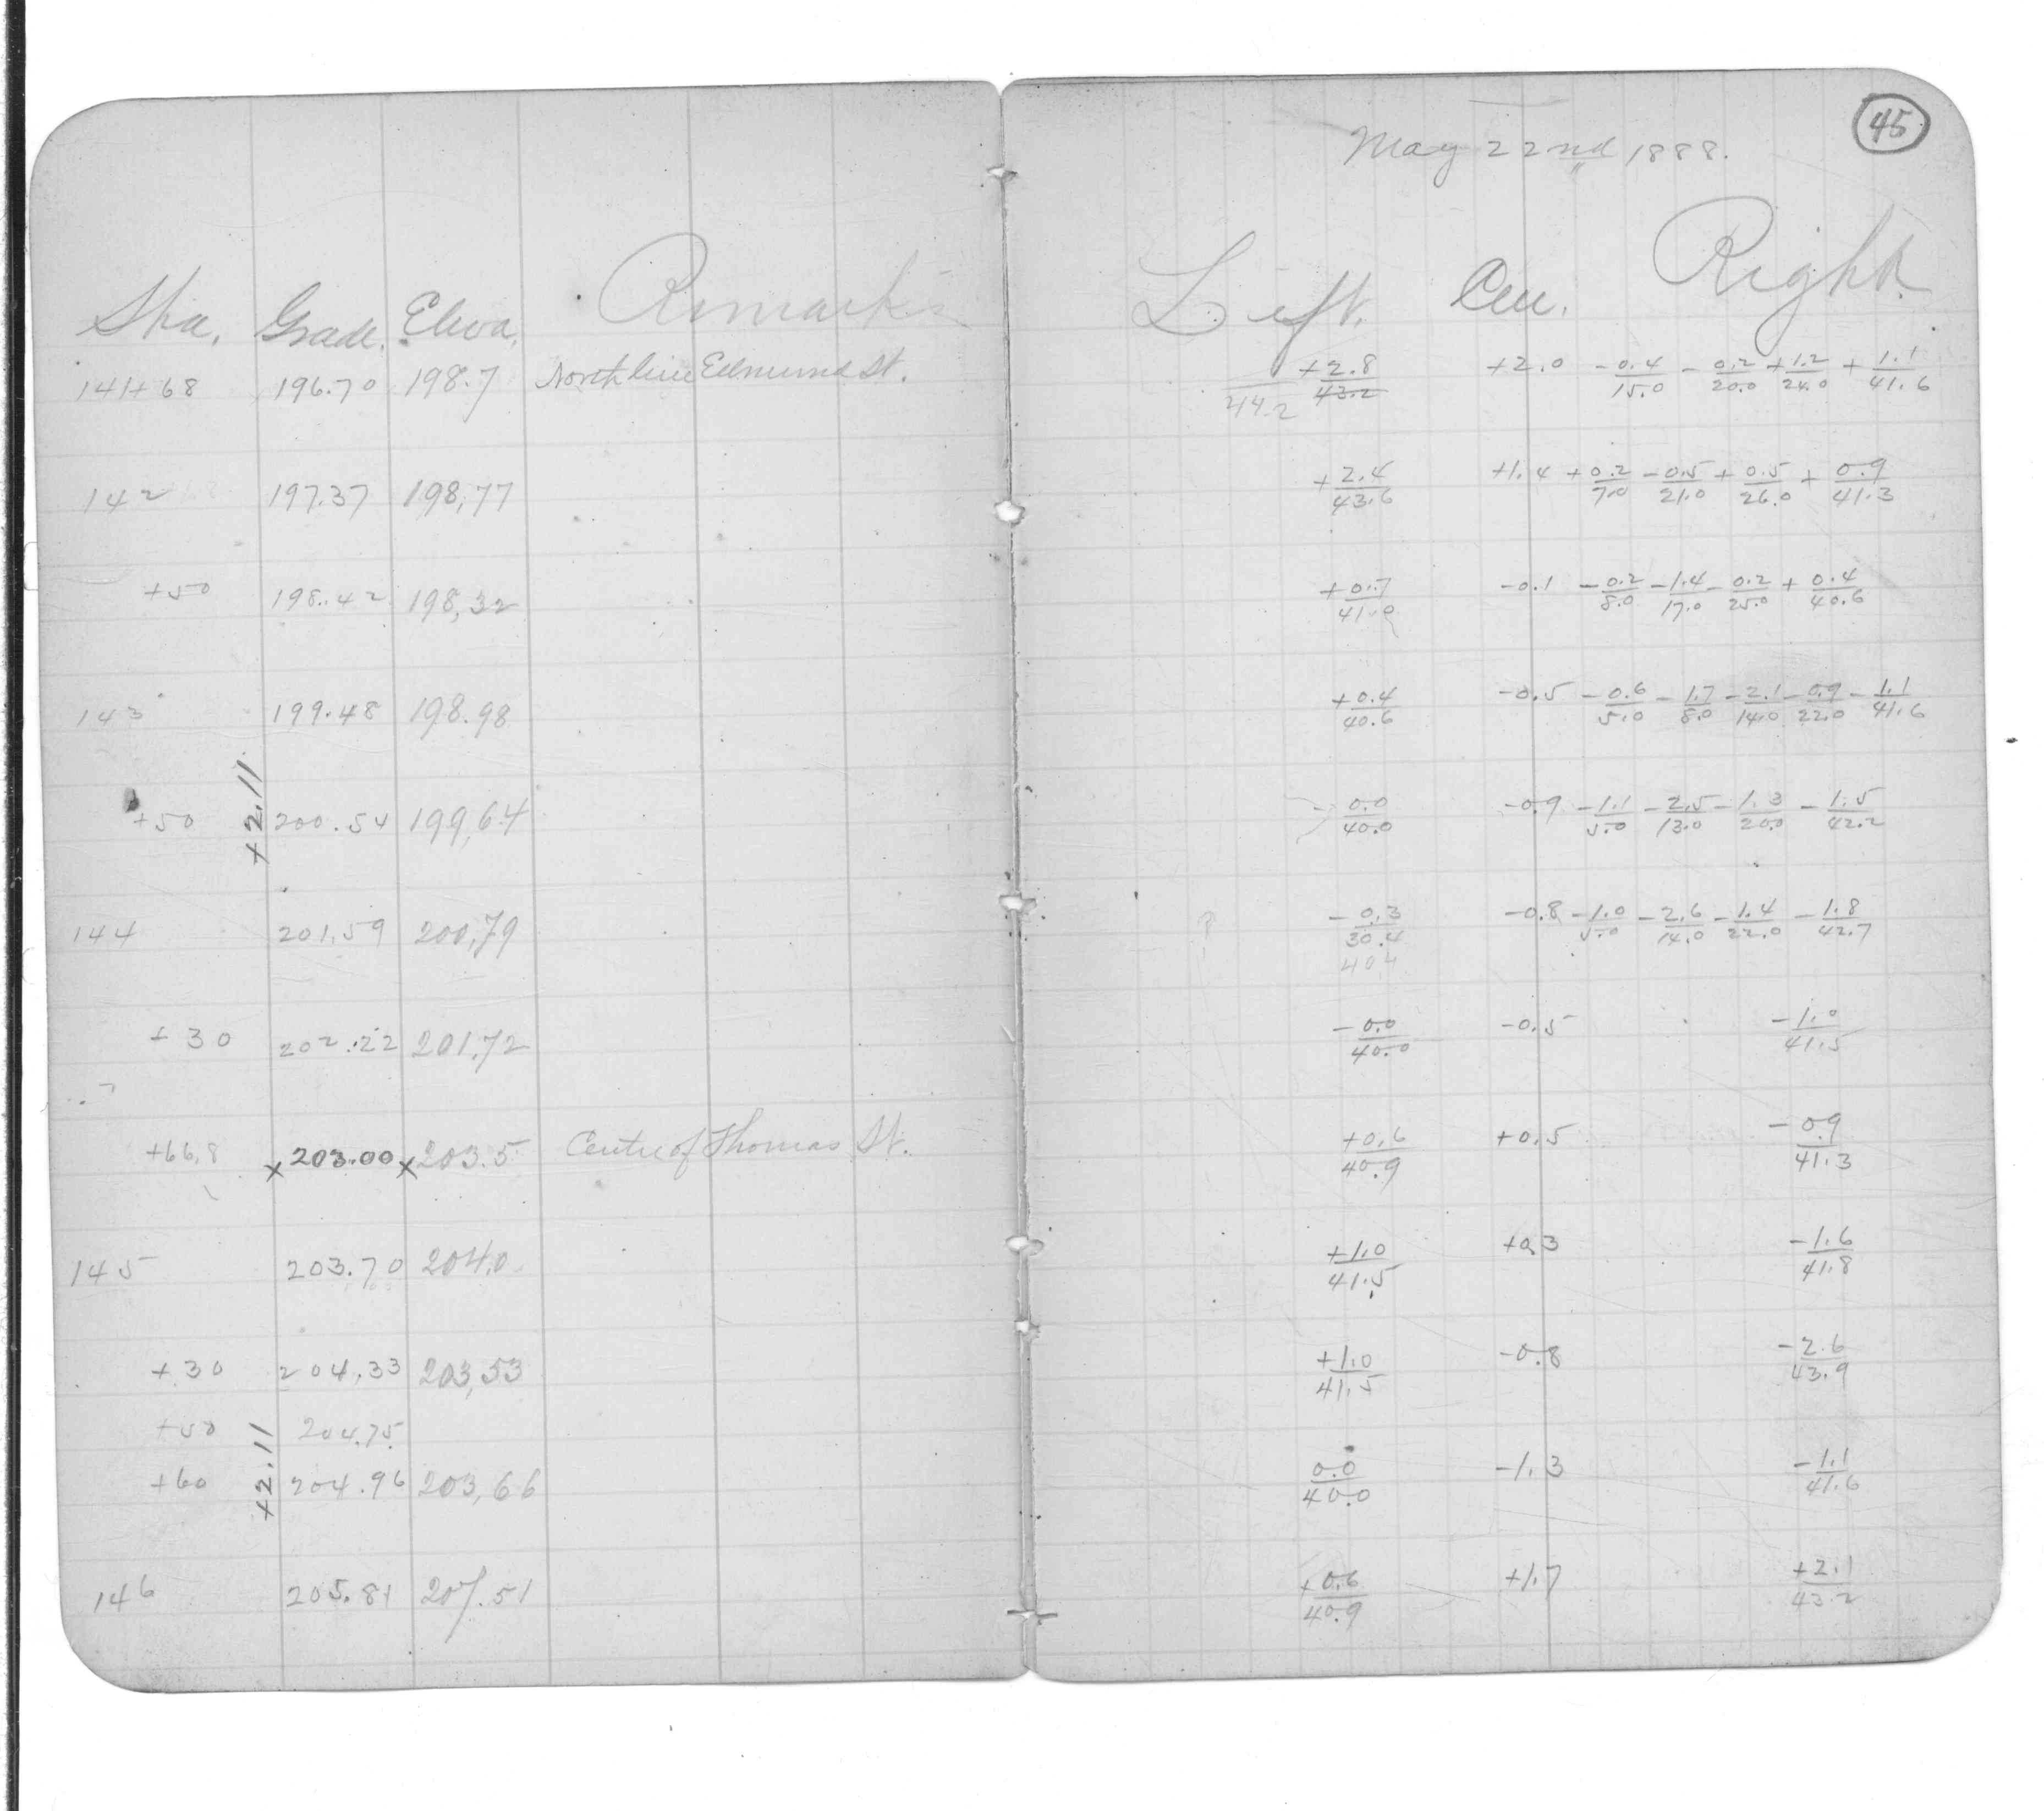 45
May 22nd 1888.
Sta. Grade. Eleva. Remarks Left. Cen. Right.
141+68 196.70 198.7 North line Edmund St. +2.8/43.2 44.2 +2.0 -0.4/15.0 -0.2/20.0 +1.2/24.0 +1.1/41.6
142 197.37 198.77 +2.4/43.6 +1.4 +0.2/7.0 -0.5/21.0 +0.5/26.0 +0.9/41.3
+50 198.42 198.32 +0.7/41.0 -0.1 -0.2/8.0 -1.4/17.0 -0.2/25.0 +0.4/40.6
143 199.48 198.98 +0.4/40.6 -0.5 -0.6/5.0 -1.7/8.0 -2.1/14.0 -0.9/22.0 -1.1/41.6
+2.11
+50 200.54 199.64 0.0/40.0 -0.9 -1.1/5.0 -2.5/13.0 -1.3/20.0 -1.5/42.2
144 201.59 200.79 -0.3/30.4 40.4 -0.8 -1.0/5.0 -2.6/14.0 -1.4/22.0 -1.8/42.7
+30 202.22 201.72 -0.0/40.0 -0.5 -1.0/41.5
+66.8 x 203.00 x 203.5 Centre of Thomas St. +0.6/40.9 +0.5 -0.9/41.3
145 203.70 204.0 +1.0/41.5 +0.3 -1.6/41.8
+30 204.33 203.53 +1.0/41.5 -0.8 -2.6/43.9
+50 204.75
+2.11
+60 204.96 203.66 0.0/40.0 -1.3 -1.1/41.6
146 205.81 207.51 +0.6/40.9 +1.7 +2.1/43.2